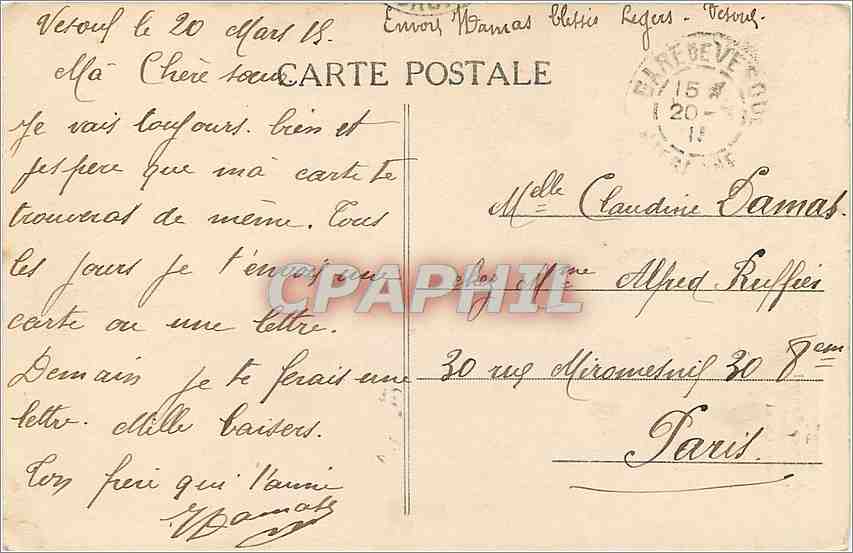 Vesoul le 20 Mars 15.
Envoi Damas blessé Legers - Vesoul
Mà Chère sœur
CARTE POSTALE
Je vais toujours bien et
j'espère que mà carte te
trouveras de même. Tous
les jours je t'envois une
carte ou une lettre.
Demain je te ferais une
lettre. Mille baisers.
Ton frère qui t'aime
Damas
GARE DE VESOUL
15
20
15
Melle Claudine Damas.
chez Mme Alfred Ruffier
30 rue Miromesnil 30 8em
Paris.
CPAPHIL